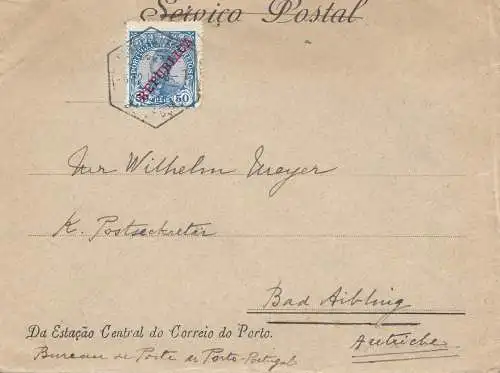 Serviço Postal
PORTUGAL CORREIOS
REPUBLICA
50
Herr Wilhelm Meyer
K. Postsekretär
Bad Aibling
Autriche
Da Estação Central do Correio do Porto.
Bureau de Poste de Porto-Portugal